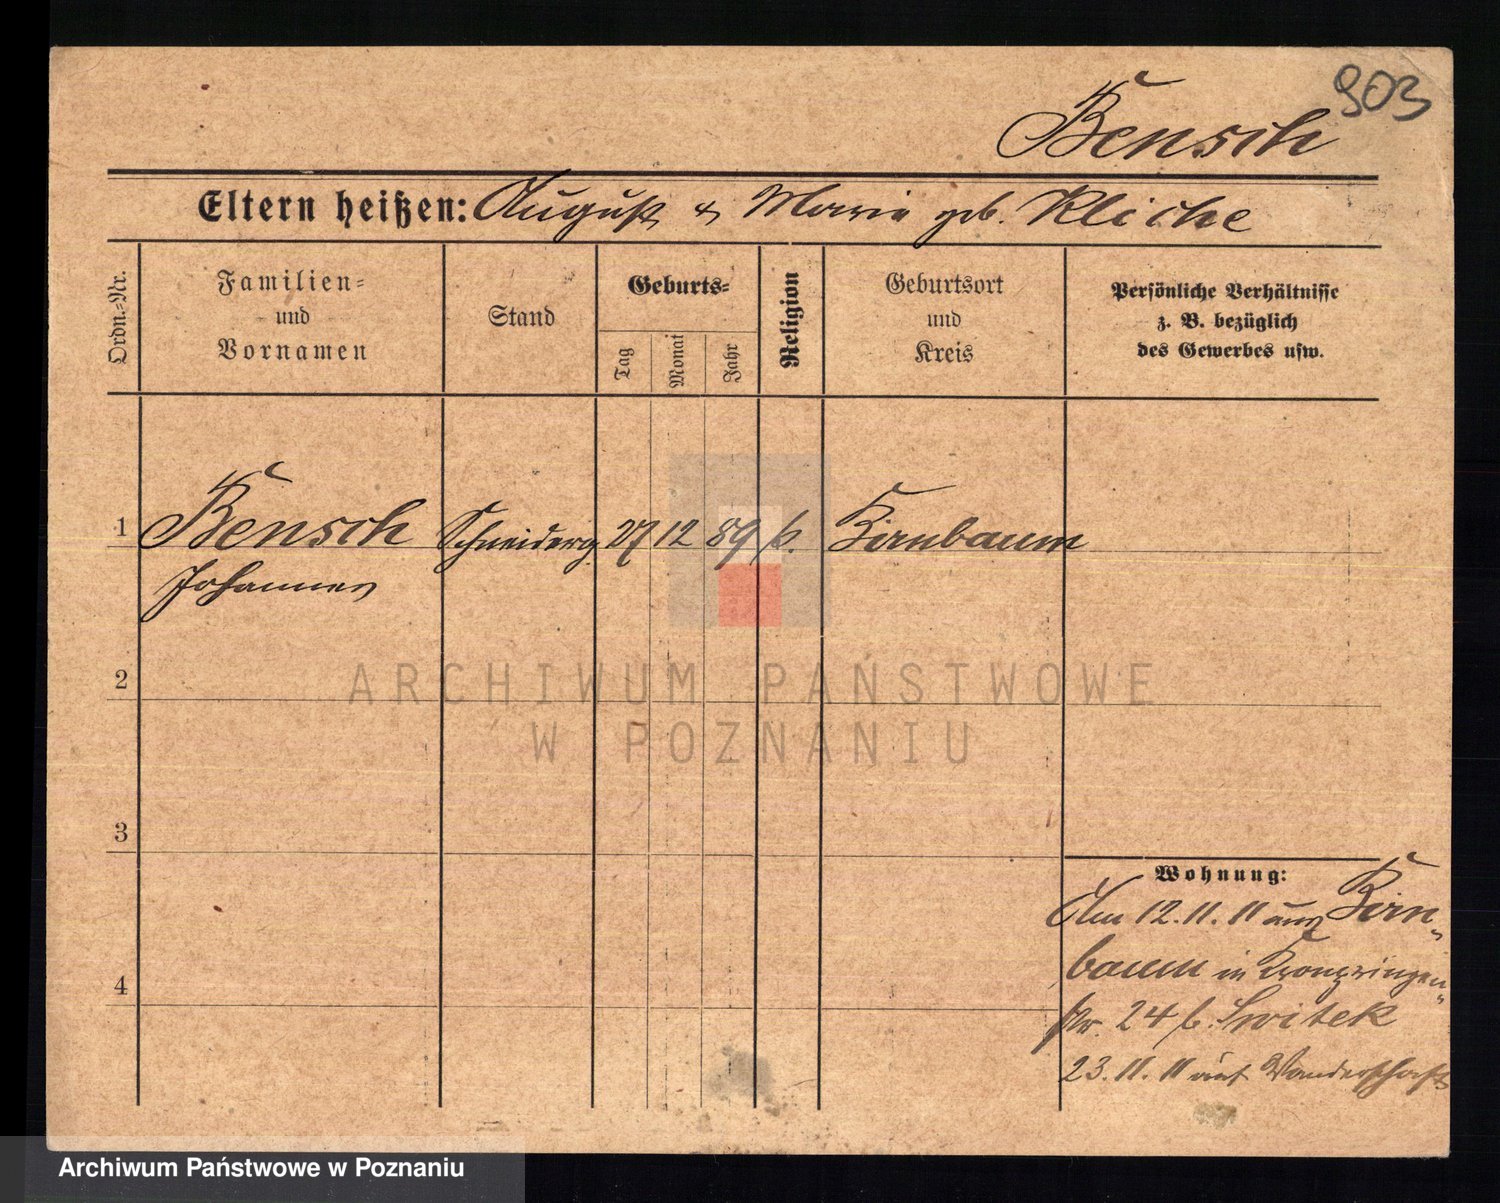 903
Bensch
Eltern heißen: August & Marie geb. Kliche
Ordn.-Nr.
Familien-
und
Vornamen
Stand
Geburts-
Tag
Monat
Jahr
Religion
Geburtsort
und
Kreis
Persönliche Verhältnisse
z. B. bezüglich
des Gewerbes usw.
1 Bensch Schneiderg. 27 12 89 k. Birnbaum
Johannes
2
ARCHIWUM PAŃSTWOWE
W POZNANIU
3
Wohnung:
Am 12.11.11 aus Birn-
baum in Kronprinzen-
str. 24 b. Switek
4
23.11.11 auf Wanderschaft
Archiwum Państwowe w Poznaniu